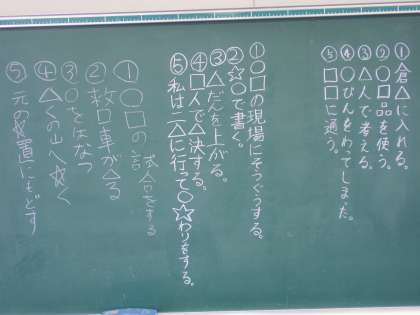 ①倉△に入れる。
②○□品を使う。
③△人で考える。
④○びんをわってしまった。
⑤□□に通う。
①○□の現場にそうぐうする。
②☆○で書く。
③△だんを上がる。
④□人で△決する。
⑤私は二△に行って○☆わりをする。
①○□の試合をする
②救□車が△る
③○をはなつ
④△くの山へ☆く
⑤元の☆置にもどす